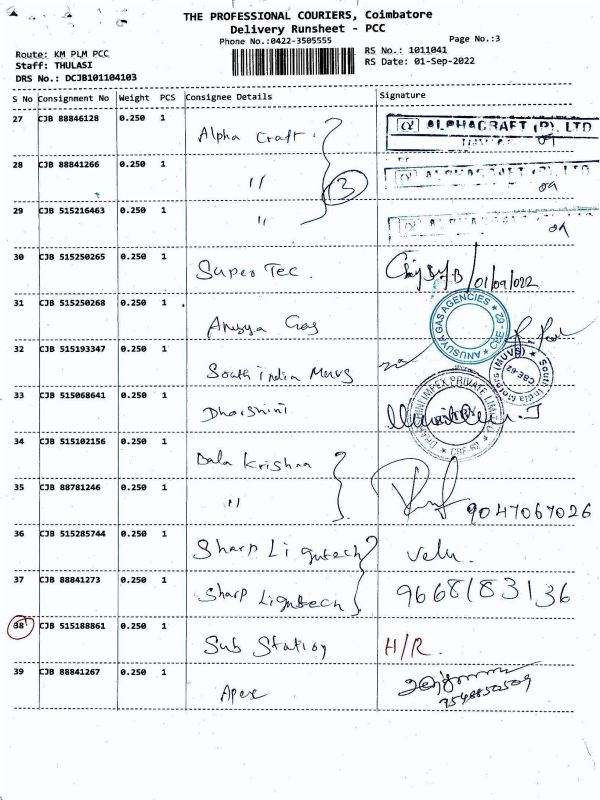 THE PROFESSIONAL COURIERS, Coimbatore
Delivery Runsheet - PCC
Phone No.:0422-3505555
Page No.:3
Route: KM PLM PCC
Staff: THULASI
DRS No.: DCJB101104103
RS No.: 1011041
RS Date: 01-Sep-2022
S No Consignment No Weight PCS Consignee Details Signature
27 CJB 88846128 0.250 1 Alpha Craft. ALPHACRAFT (P). LTD
28 CJB 88841266 0.250 1 〃 3
29 CJB 515216463 0.250 1 〃
30 CJB 515250265 0.250 1 Super Tec. 01/09/022
31 CJB 515250268 0.250 1 Anusya Gas ANUSUYA GAS AGENCIES ★ CBE-62 ★
32 CJB 515193347 0.250 1 South india Muvs South India Motors (MUVS) ★ CBE-62 ★
33 CJB 515068641 0.250 1 Dharshini. DHARSHINI IMPEX PRIVATE LIMITED ★ CBE-62 ★
34 CJB 515102156 0.250 1 Bala Krishna
35 CJB 88781246 0.250 1 〃 9047067026
36 CJB 515285744 0.250 1 Sharp Lightech Velu.
37 CJB 88841273 0.250 1 Sharp Lightech 9668183136
38 CJB 515188861 0.250 1 Sub Station H/R.
39 CJB 88841267 0.250 1 Apex